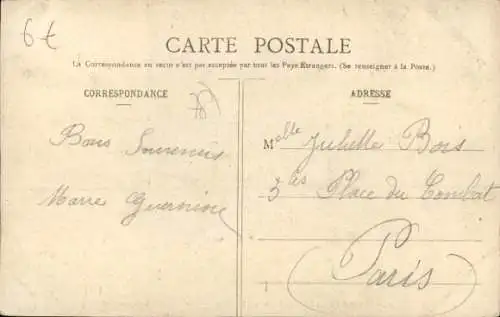 6€
CARTE POSTALE
La Correspondance au recto n'est pas acceptée par tous les Pays Etrangers. (Se renseigner à la Poste.)
CORRESPONDANCE
78
ADRESSE
Bons Souvenirs
Marie
Melle Juliette Bois
3 bis Place du Combat
Paris